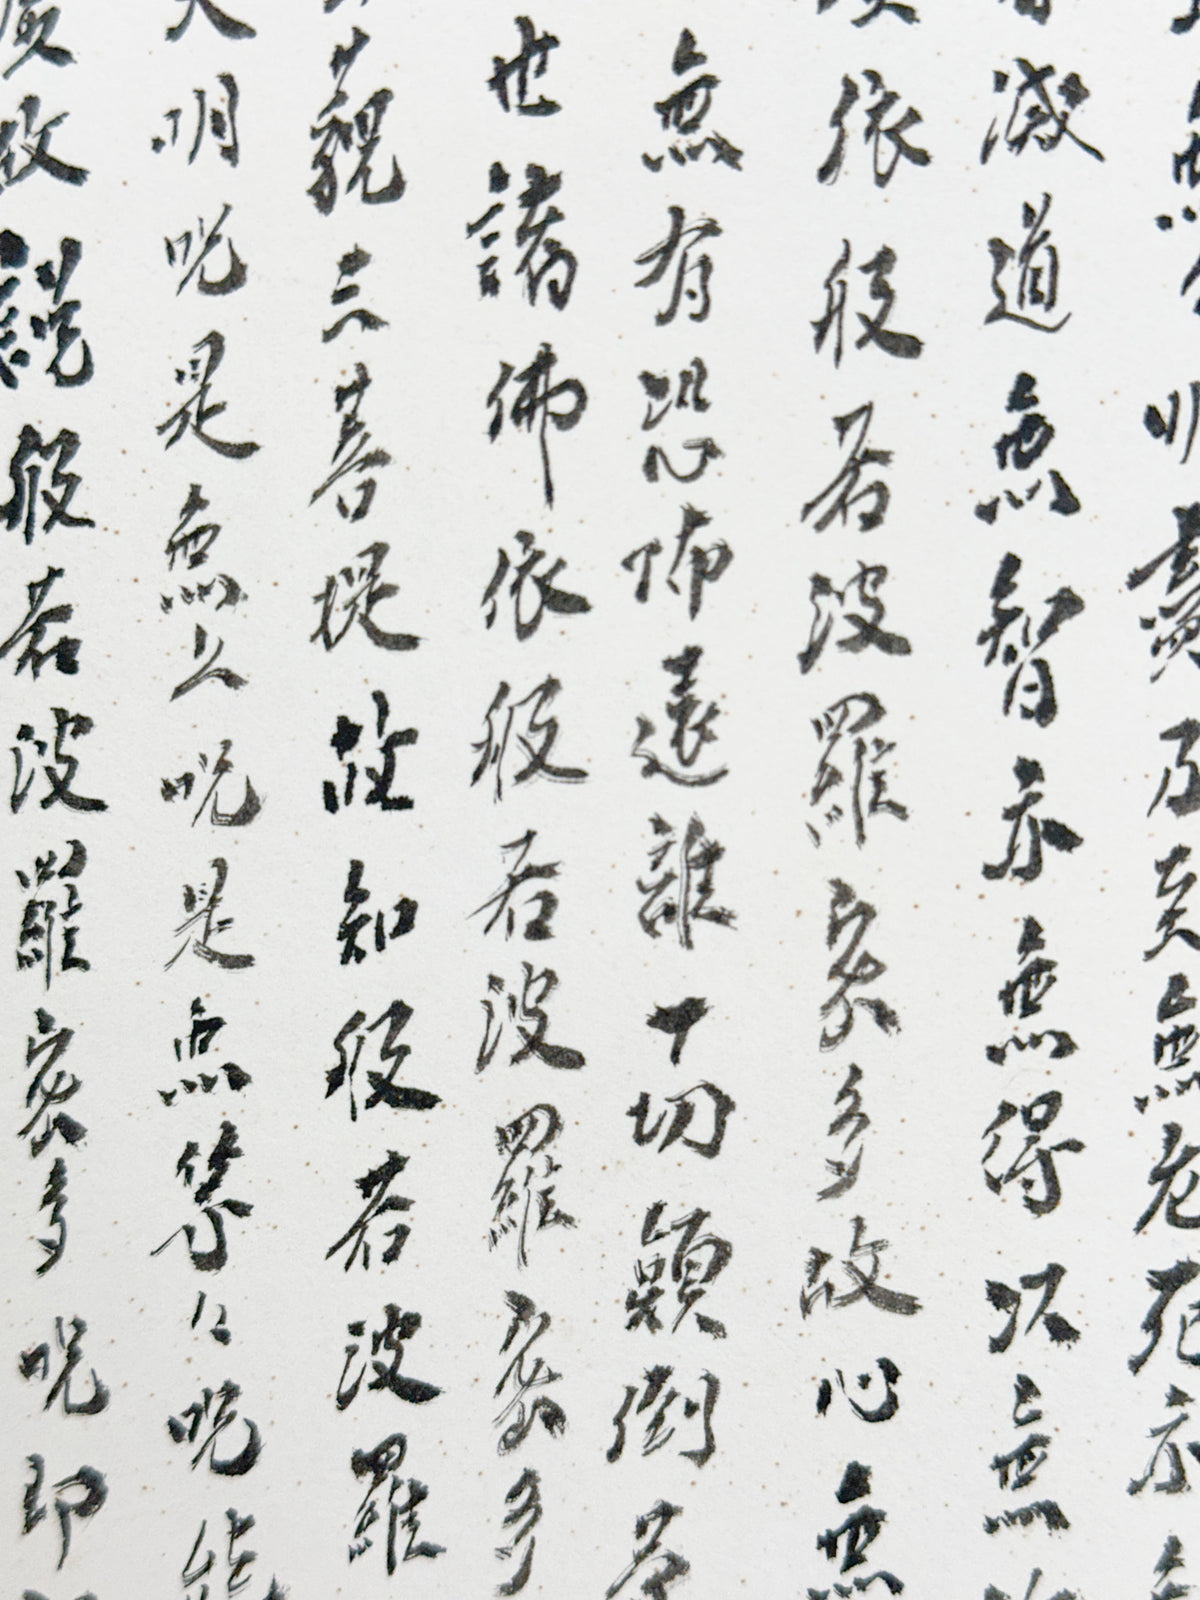 明盡乃至無老死亦
滅道無智亦無得以無
依般若波羅蜜多故心無
無有恐怖遠離一切顛倒
世諸佛依般若波羅蜜多
藐三菩提故知般若波羅
明呪是無上呪是無等々呪能
故說般若波羅蜜多呪即